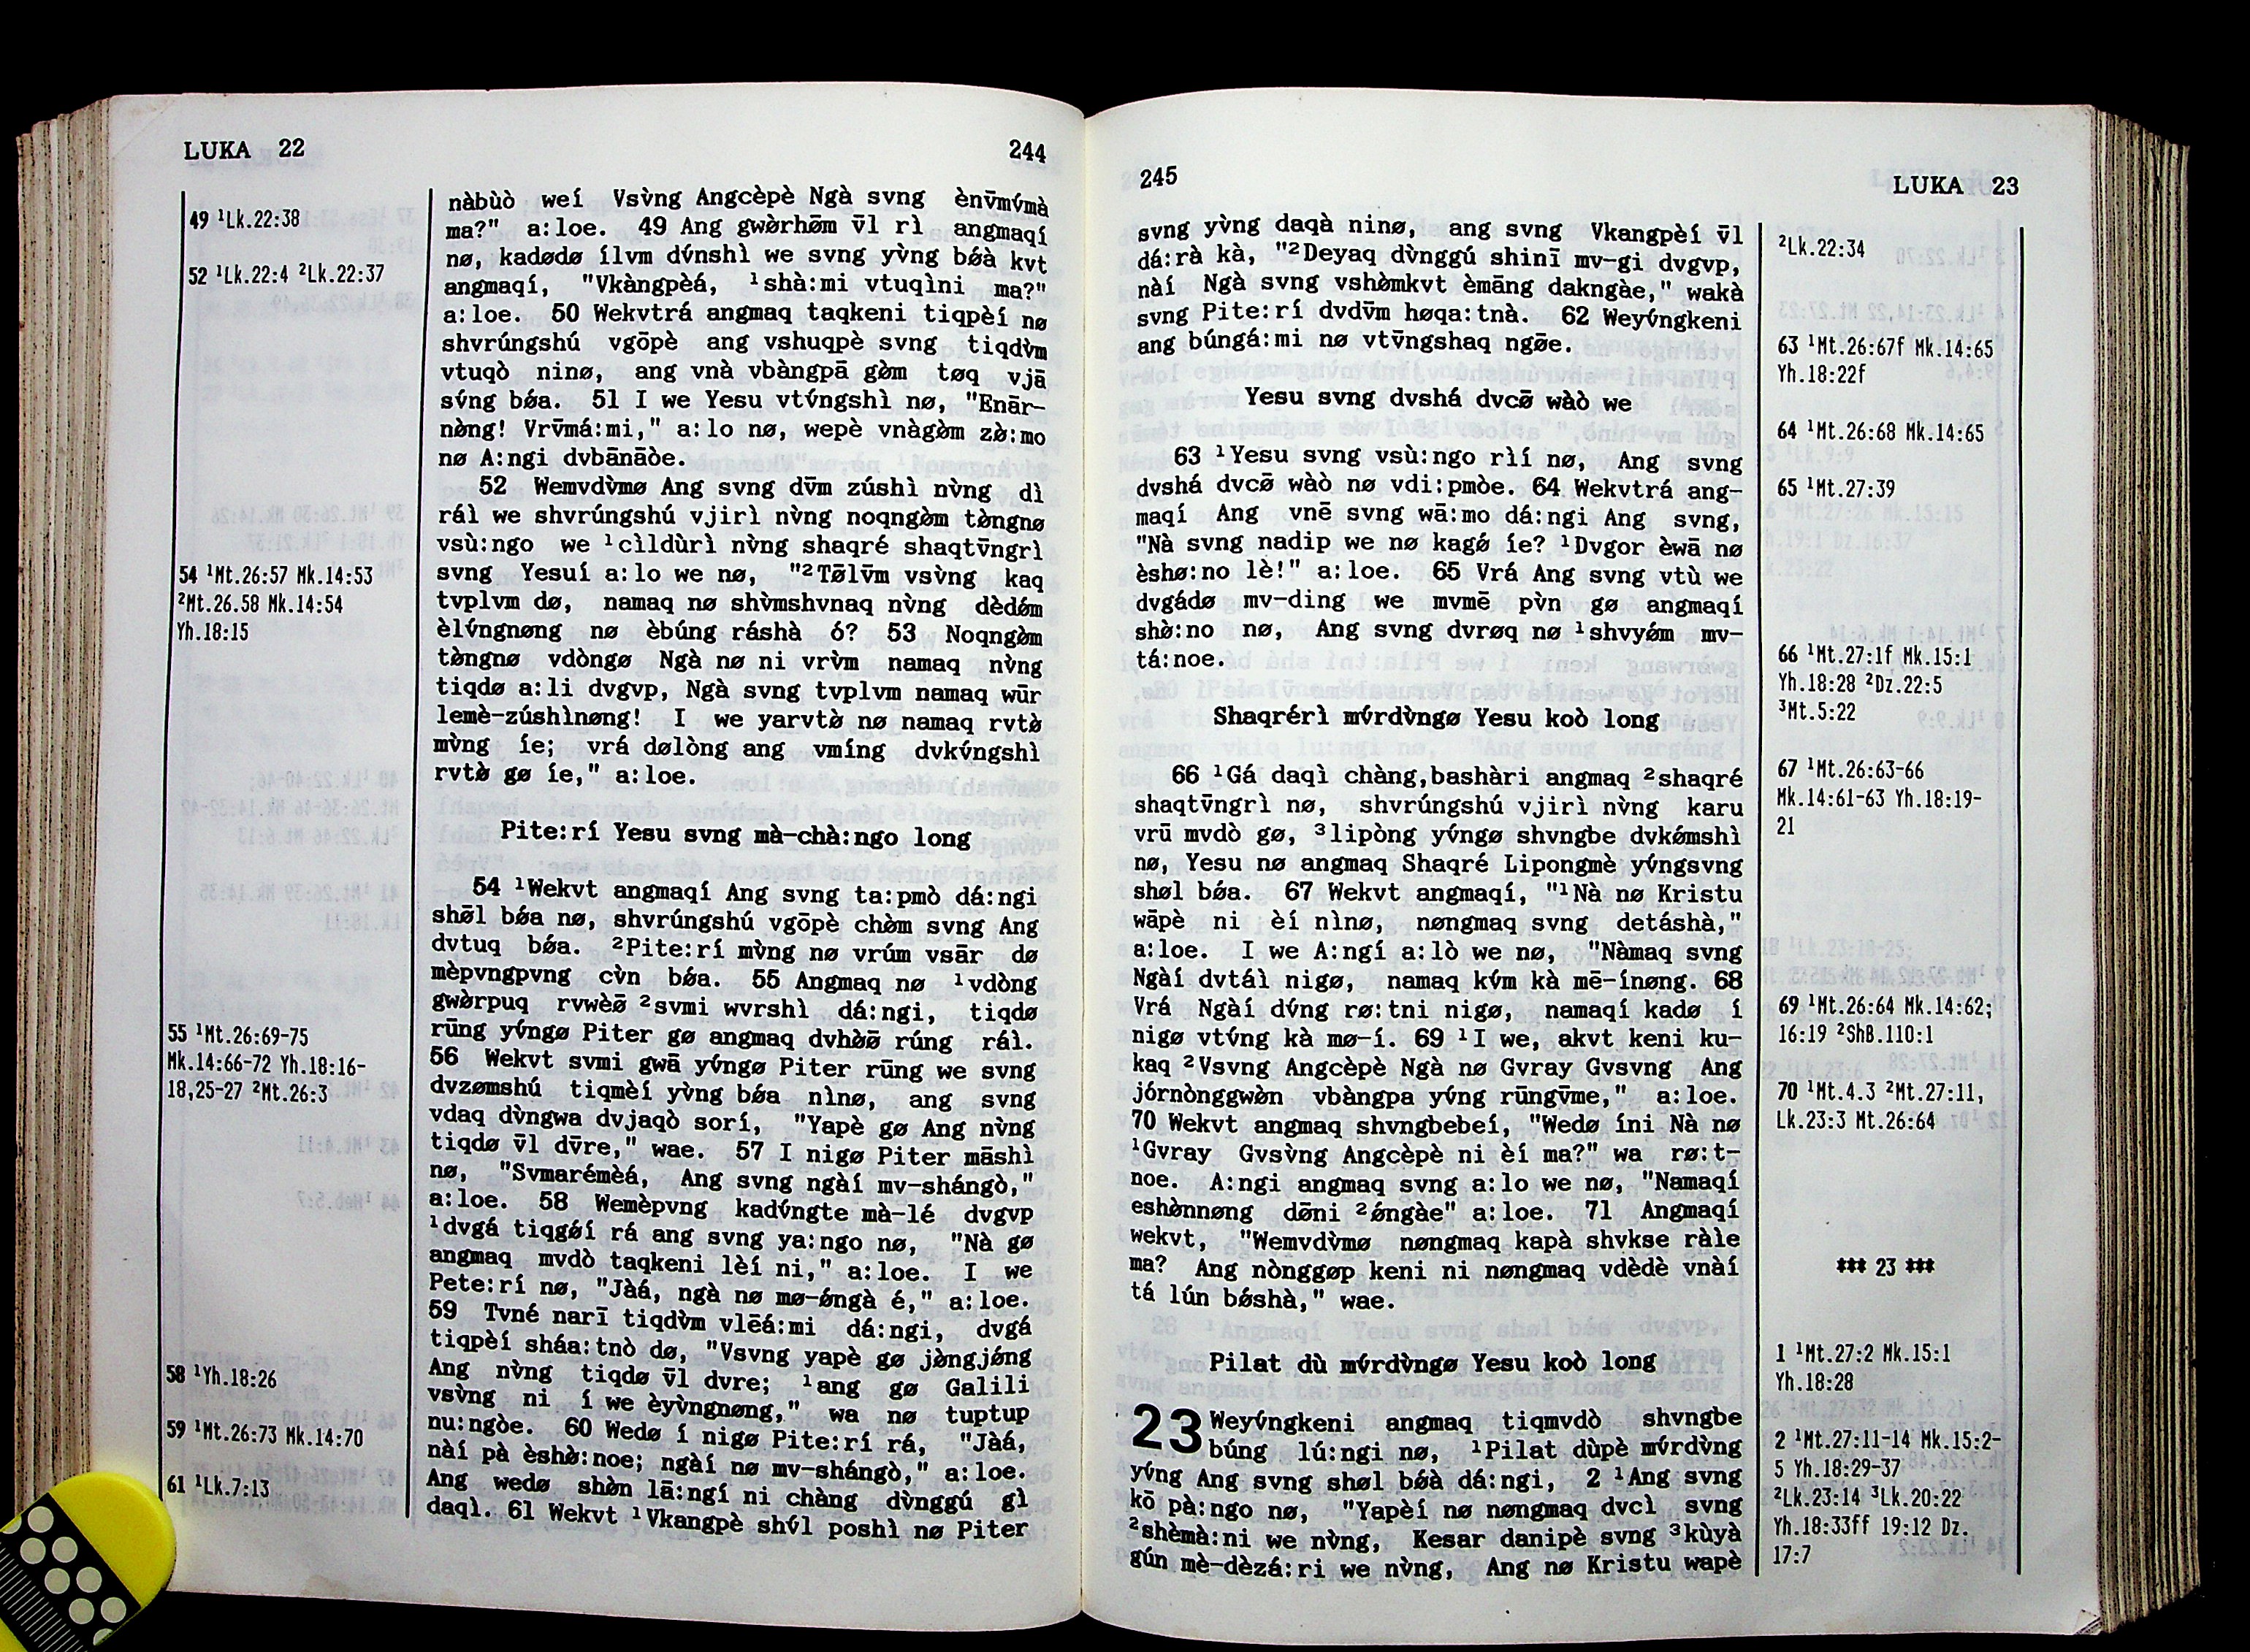 LUKA 22
244
49 ¹Lk.22:38
52 ¹Lk.22:4 ²Lk.22:37
54 ¹Mt.26:57 Mk.14:53
²Mt.26.58 Mk.14:54
Yh.18:15
55 ¹Mt.26:69-75
Mk.14:66-72 Yh.18:16-
18,25-27 ²Mt.26:3
58 ¹Yh.18:26
59 ¹Mt.26:73 Mk.14:70
61 ¹Lk.7:13
nàbùò weí Vsv̀ng Angcèpè Ngà svng ènv̄mv́mà
ma?" a:loe. 49 Ang gwø̀rhø̄m v̄l rì angmaqí
nø, kadødø ílvm dv́nshì we svng yv̀ng bǿà kvt
angmaqí, "Vkàngpèá, ¹shà:mi vtuqìni ma?"
a:loe. 50 Wekvtrá angmaq taqkeni tiqpèí nø
shvrúngshú vgōpè ang vshuqpè svng tiqdv̀m
vtuqò ninø, ang vnà vbàngpā gø̀m tøq vjā
sv́ng bǿa. 51 I we Yesu vtv́ngshì nø, "Enār-
nø̀ng! Vrv̄má:mi," a:lo nø, wepè vnàgø̀m zø̀:mo
nø A:ngi dvbānāòe.
52 Wemvdv̀mø Ang svng dv̄m zúshì nv̀ng dì
ráì we shvrúngshú vjirì nv̀ng noqngø̀m tø̀ngnø
vsù:ngo we ¹cìldùrì nv̀ng shaqré shaqtv̄ngrì
svng Yesuí a:lo we nø, "²Tø̄lv̄m vsv̀ng kaq
tvplvm dø, namaq nø shv̀mshvnaq nv̀ng dèdǿm
èlv́ngnøng nø èbúng ráshà ó? 53 Noqngø̀m
tø̀ngnø vdòngø Ngà nø ni vrv̀m namaq nv̀ng
tiqdø a:li dvgvp, Ngà svng tvplvm namaq wūr
lemè-zúshìnøng! I we yarvtø̀ nø namaq rvtø̀
mv̀ng íe; vrá dølòng ang vmíng dvkv́ngshì
rvtø̀ gø íe," a:loe.
Pite:rí Yesu svng mà-chà:ngo long
54 ¹Wekvt angmaqí Ang svng ta:pmò dá:ngi
shø̄l bǿa nø, shvrúngshú vgōpè chø̀m svng Ang
dvtuq bǿa. ²Pite:rí mv̀ng nø vrúm vsār dø
mèpvngpvng cv̀n bǿa. 55 Angmaq nø ¹vdòng
gwø̀rpuq rvwèø̄ ²svmi wvrshì dá:ngi, tiqdø
rūng yv́ngø Piter gø angmaq dvhø̀ø̄ rúng ráì.
56 Wekvt svmi gwā yv́ngø Piter rūng we svng
dvzømshú tiqmèí yv̀ng bǿa nìnø, ang svng
vdaq dv̀ngwa dvjaqò sorí, "Yapè gø Ang nv̀ng
tiqdø v̄l dv̄re," wae. 57 I nigø Piter māshì
nø, "Svmarémèá, Ang svng ngàí mv-shángò,"
a:loe. 58 Wemèpvng kadv́ngte mà-lé dvgvp
¹dvgá tiqgǿí rá ang svng ya:ngo nø, "Nà gø
angmaq mvdò taqkeni lèí ni," a:loe. I we
Pete:rí nø, "Jàá, ngà nø mø-ǿngà é," a:loe.
59 Tvné narī tiqdv̀m vlēá:mi dá:ngi, dvgá
tiqpèí sháa:tnò dø, "Vsvng yapè gø jø̀ngjǿng
Ang nv̀ng tiqdø v̄l dvre; ¹ang gø Galili
vsv̀ng ni í we èyv̀ngnøng," wa nø tuptup
nu:ngòe. 60 Wedø í nigø Pite:rí rá, "Jàá,
nàí pà èshø̀:noe; ngàí nø mv-shángò," a:loe.
Ang wedø shø̀n lā:ngí ni chàng dv̀nggú gì
daqì. 61 Wekvt ¹Vkangpè shv́l poshì nø Piter
245
LUKA 23
svng yv̀ng daqà ninø, ang svng Vkangpèí v̄l
dá:rà kà, "²Deyaq dv̀nggú shinī mv-gi dvgvp,
nàí Ngà svng vshø̀mkvt èmāng dakngàe," wakà
svng Pite:rí dvdv̄m høqa:tnà. 62 Weyv́ngkeni
ang búngá:mi nø vtv̄ngshaq ngø̄e.
Yesu svng dvshá dvcø̄ wàò we
63 ¹Yesu svng vsù:ngo rìí nø, Ang svng
dvshá dvcø̄ wàò nø vdi:pmòe. 64 Wekvtrá ang-
maqí Ang vnē svng wā:mo dá:ngi Ang svng,
"Nà svng nadip we nø kagǿ íe? ¹Dvgor èwā nø
èshø:no lè!" a:loe. 65 Vrá Ang svng vtù we
dvgádø mv-ding we mvmē pv̀n gø angmaqí
shø̀:no nø, Ang svng dvrøq nø ¹shvyǿm mv-
tá:noe.
Shaqrérì mv́rdv̀ngø Yesu koò long
66 ¹Gá daqì chàng,bashàri angmaq ²shaqré
shaqtv̄ngrì nø, shvrúngshú vjirì nv̀ng karu
vrū mvdò gø, ³lipòng yv́ngø shvngbe dvkǿmshì
nø, Yesu nø angmaq Shaqré Lipongmè yv́ngsvng
shøl bǿa. 67 Wekvt angmaqí, "¹Nà nø Kristu
wāpè ni èí nìnø, nøngmaq svng detáshà,"
a:loe. I we A:ngí a:lò we nø, "Nàmaq svng
Ngàí dvtáì nigø, namaq kv́m kà mē-ínøng. 68
Vrá Ngàí dv́ng rø:tni nigø, namaqí kadø í
nigø vtv́ng kà mø-í. 69 ¹I we, akvt keni ku-
kaq ²Vsvng Angcèpè Ngà nø Gvray Gvsvng Ang
jórnònggwø̀n vbàngpa yv́ng rūngv̄me," a:loe.
70 Wekvt angmaq shvngbebeí, "Wedø íni Nà nø
¹Gvray Gvsv̀ng Angcèpè ni èí ma?" wa rø:t-
noe. A:ngi angmaq svng a:lo we nø, "Namaqí
eshø̀nnøng dø̄ni ²ǿngàe" a:loe. 71 Angmaqí
wekvt, "Wemvdv̀mø nøngmaq kapà shvkse ràìe
ma? Ang nònggøp keni ni nøngmaq vdèdè vnàí
tá lún bǿshà," wae.
Pilat dù mv́rdv̀ngø Yesu koò long
23 Weyv́ngkeni angmaq tiqmvdò shvngbe
búng lú:ngi nø, ¹Pilat dùpè mv́rdv̀ng
yv́ng Ang svng shøl bǿà dá:ngi, 2 ¹Ang svng
kō pà:ngo nø, "Yapèí nø nøngmaq dvcì svng
²shèmà:ni we nv̀ng, Kesar danipè svng ³kùyà
gún mè-dèzá:ri we nv̀ng, Ang nø Kristu wapè
²Lk.22:34
63 ¹Mt.26:67f Mk.14:65
Yh.18:22f
64 ¹Mt.26:68 Mk.14:65
65 ¹Mt.27:39
66 ¹Mt.27:1f Mk.15:1
Yh.18:28 ²Dz.22:5
³Mt.5:22
67 ¹Mt.26:63-66
Mk.14:61-63 Yh.18:19-
21
69 ¹Mt.26:64 Mk.14:62;
16:19 ²ShB.110:1
70 ¹Mt.4.3 ²Mt.27:11,
Lk.23:3 Mt.26:64
*** 23 ***
1 ¹Mt.27:2 Mk.15:1
Yh.18:28
2 ¹Mt.27:11-14 Mk.15:2-
5 Yh.18:29-37
²Lk.23:14 ³Lk.20:22
Yh.18:33ff 19:12 Dz.
17:7